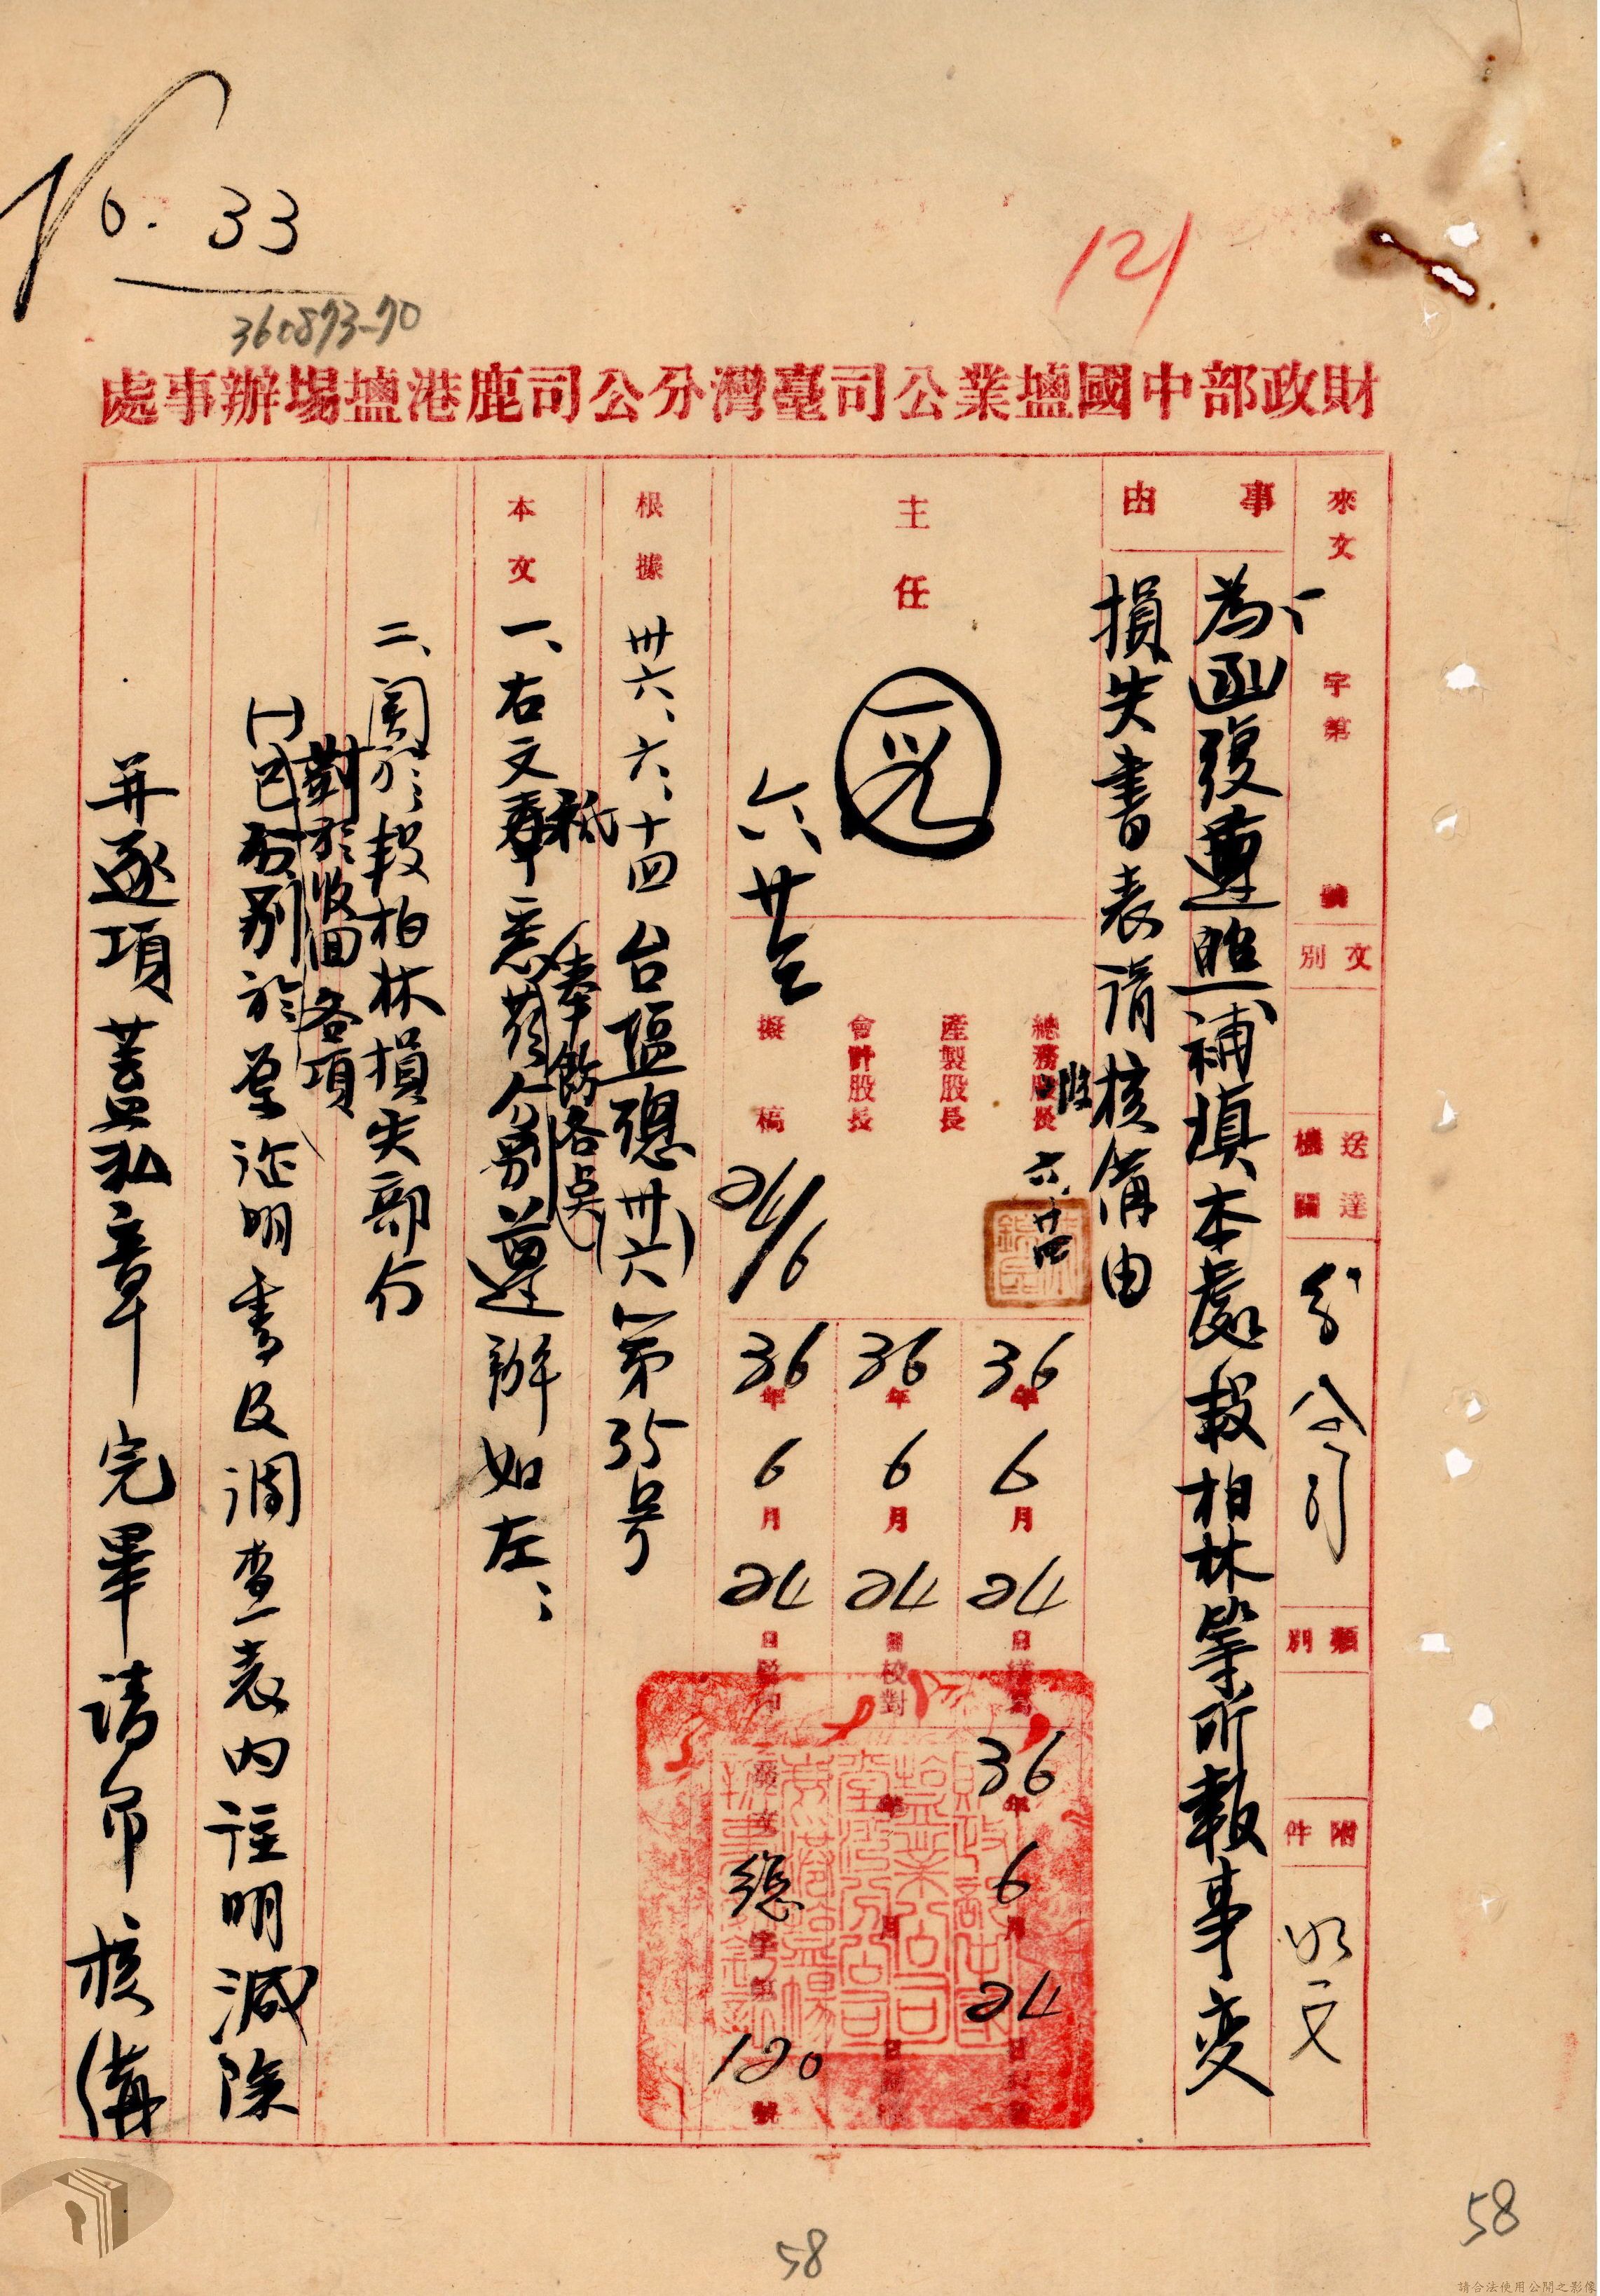 No. 33
360873-70
121
財政部中國鹽業公司臺灣分公司鹿港鹽場辦事處
來文 字第 號
文別
送達機關 分公司
類別
附件 如文
事由
為函復遵照補填本處段柏林等所報事变
損失書表請核備由
主任
六、廿五
總務股長 六、廿四
產製股長
會計股長
擬稿 24/6
36年6月24日繕寫
36年6月24日校對
36年6月24日
36年6月24日
年 月 日
發文總字第120號
根據 卅六、六、十四台塩總(卅六)第35号
本文 一、右文祗奉飭各点遵辦如左：
二、関於段柏林損失部份
對於收回各項
(一)已於原证明書及調查表内註明減除
并逐項蓋私章完畢請予核備
58
58
請合法使用公開之影像